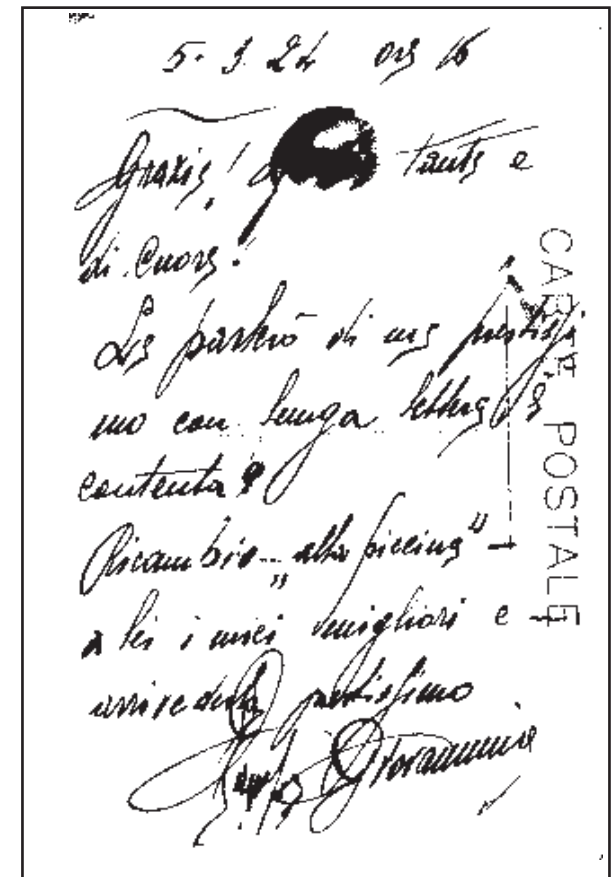 5. 3. 24 ore 16
Grazie! tante e
di cuore!
Le parlerò di me prestissi
mo con lunga lettera. È
contenta?
Ricambio „alla piccina"
a lei i miei migliori e
arrivederla prestissimo
Giovannini
CARTE POSTALE